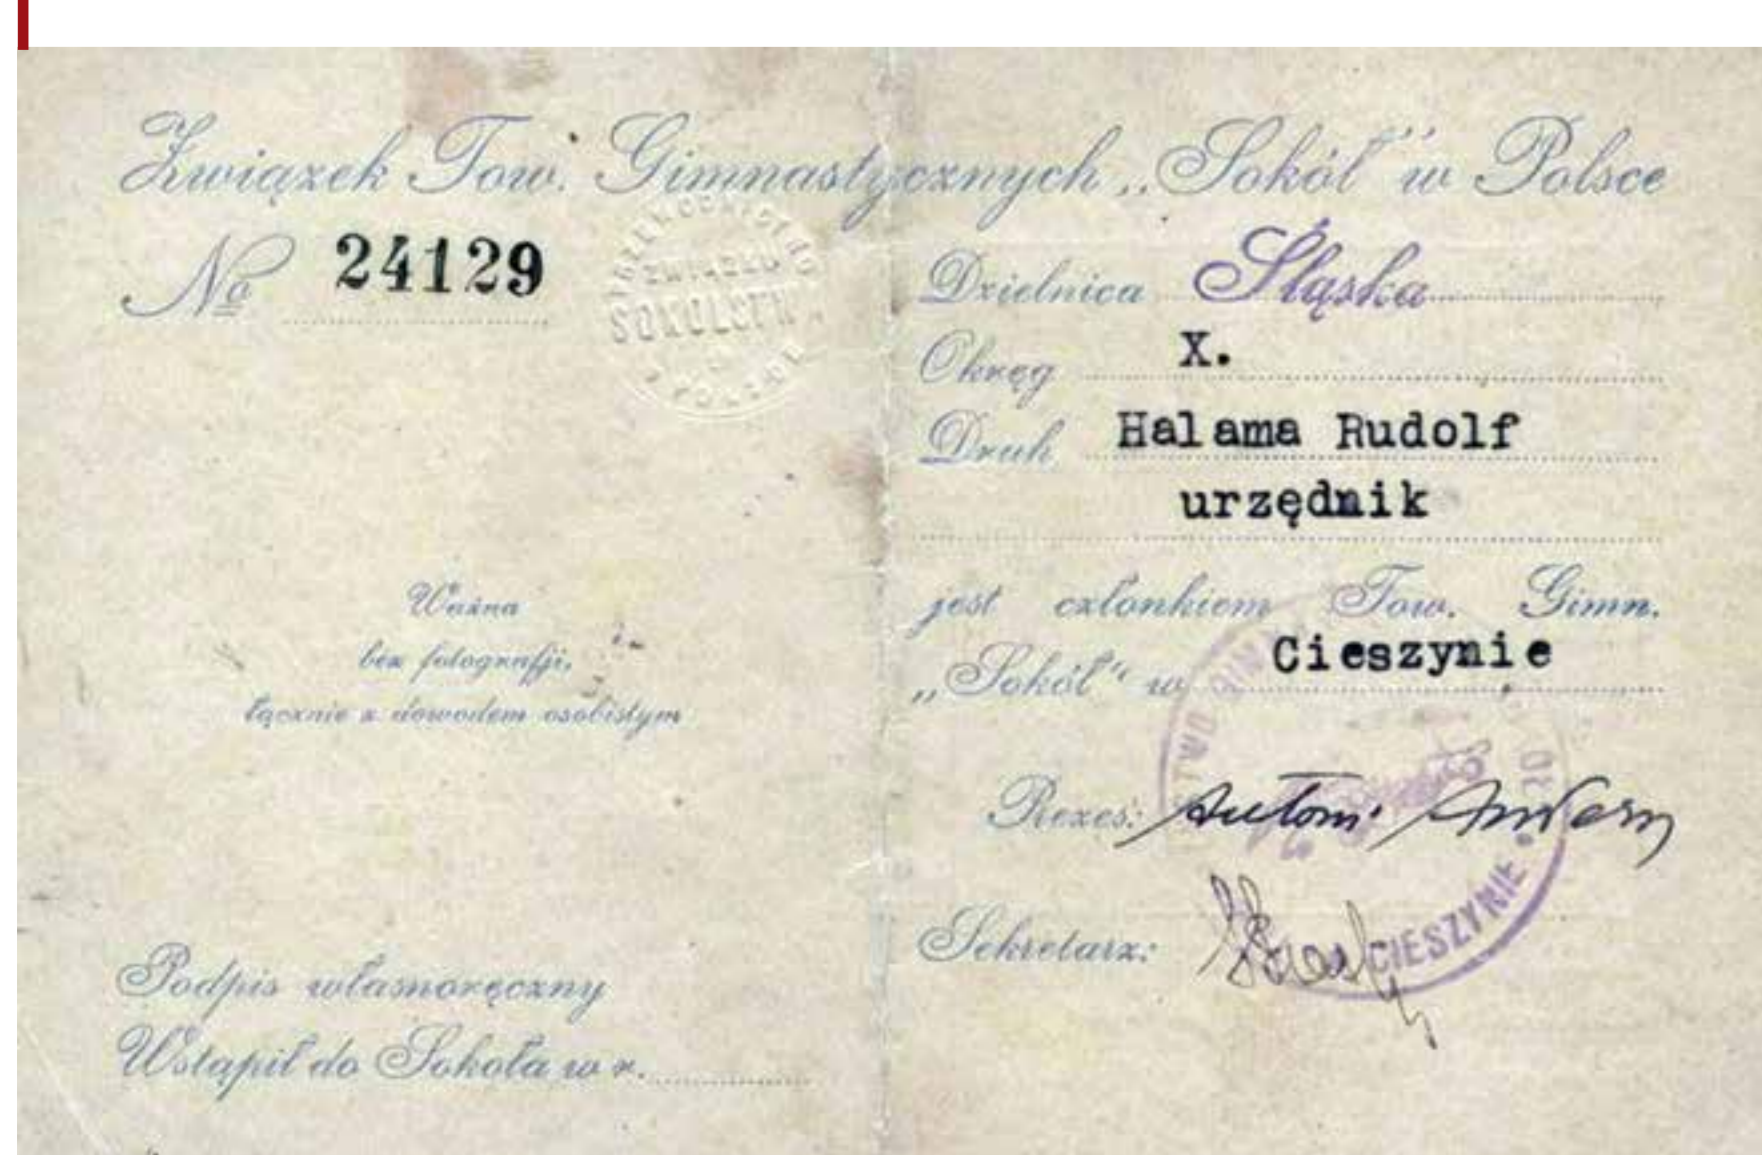 Związek Tow. Gimnastycznych „Sokół" w Polsce
No 24129
ZWIĄZKU
SOKOLSTWA
Ważna
bez fotografji,
łącznie z dowodem osobistym
Podpis własnoręczny
Wstąpił do Sokoła w r.
Dzielnica Śląska
Okręg X.
Druh Halama Rudolf
urzędnik
jest członkiem Tow. Gimn.
„Sokół" w Cieszynie
Prezes: Antoni
Sekretarz:
CIESZYNIE